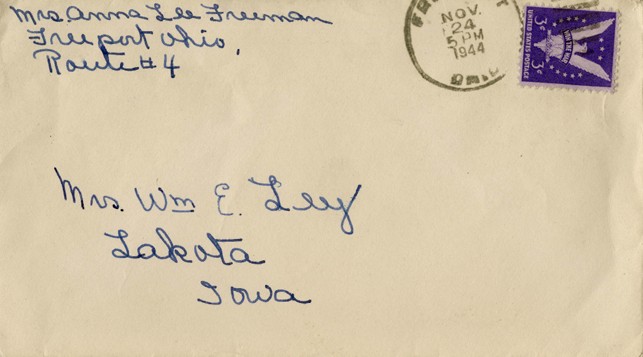 Mrs. Anna Lee Freeman
Freeport Ohio,
Route #4
NOV.
24
5 PM
1944
OHIO
UNITED STATES POSTAGE
WIN THE WAR
3¢ 3¢
Mrs. Wm E. Ley
Lakota
Iowa